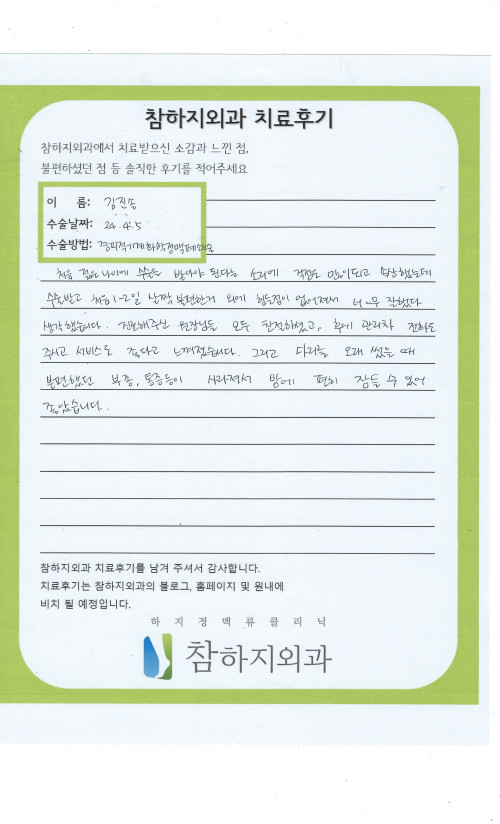 참하지외과 치료후기
참하지외과에서 치료받으신 소감과 느낀 점,
불편하셨던 점 등 솔직한 후기를 적어주세요
이 름: 김진솔
수술날짜: 24.4.5
수술방법: 경피적기계화학정맥폐쇄술
처음 젊은 나이에 수술을 받아야 된다는 소리에 걱정도 많이되고 심란했는데
수술받고 처음 1-2일 살짝 불편한거 외에 힘든점이 없어져서 너무 잘했다
생각했습니다. 진료해주신 원장님들 모두 친절하셨고, 후에 관리차 전화도
주시고 서비스도 좋다고 느껴졌습니다. 그리고 다리를 오래 썼을 때
불편했던 부종, 통증등이 사라져서 밤에 편히 잠들 수 있어
좋았습니다.
참하지외과 치료후기를 남겨 주셔서 감사합니다.
치료후기는 참하지외과의 블로그, 홈페이지 및 원내에
비치 될 예정입니다.
하지정맥류클리닉
참하지외과